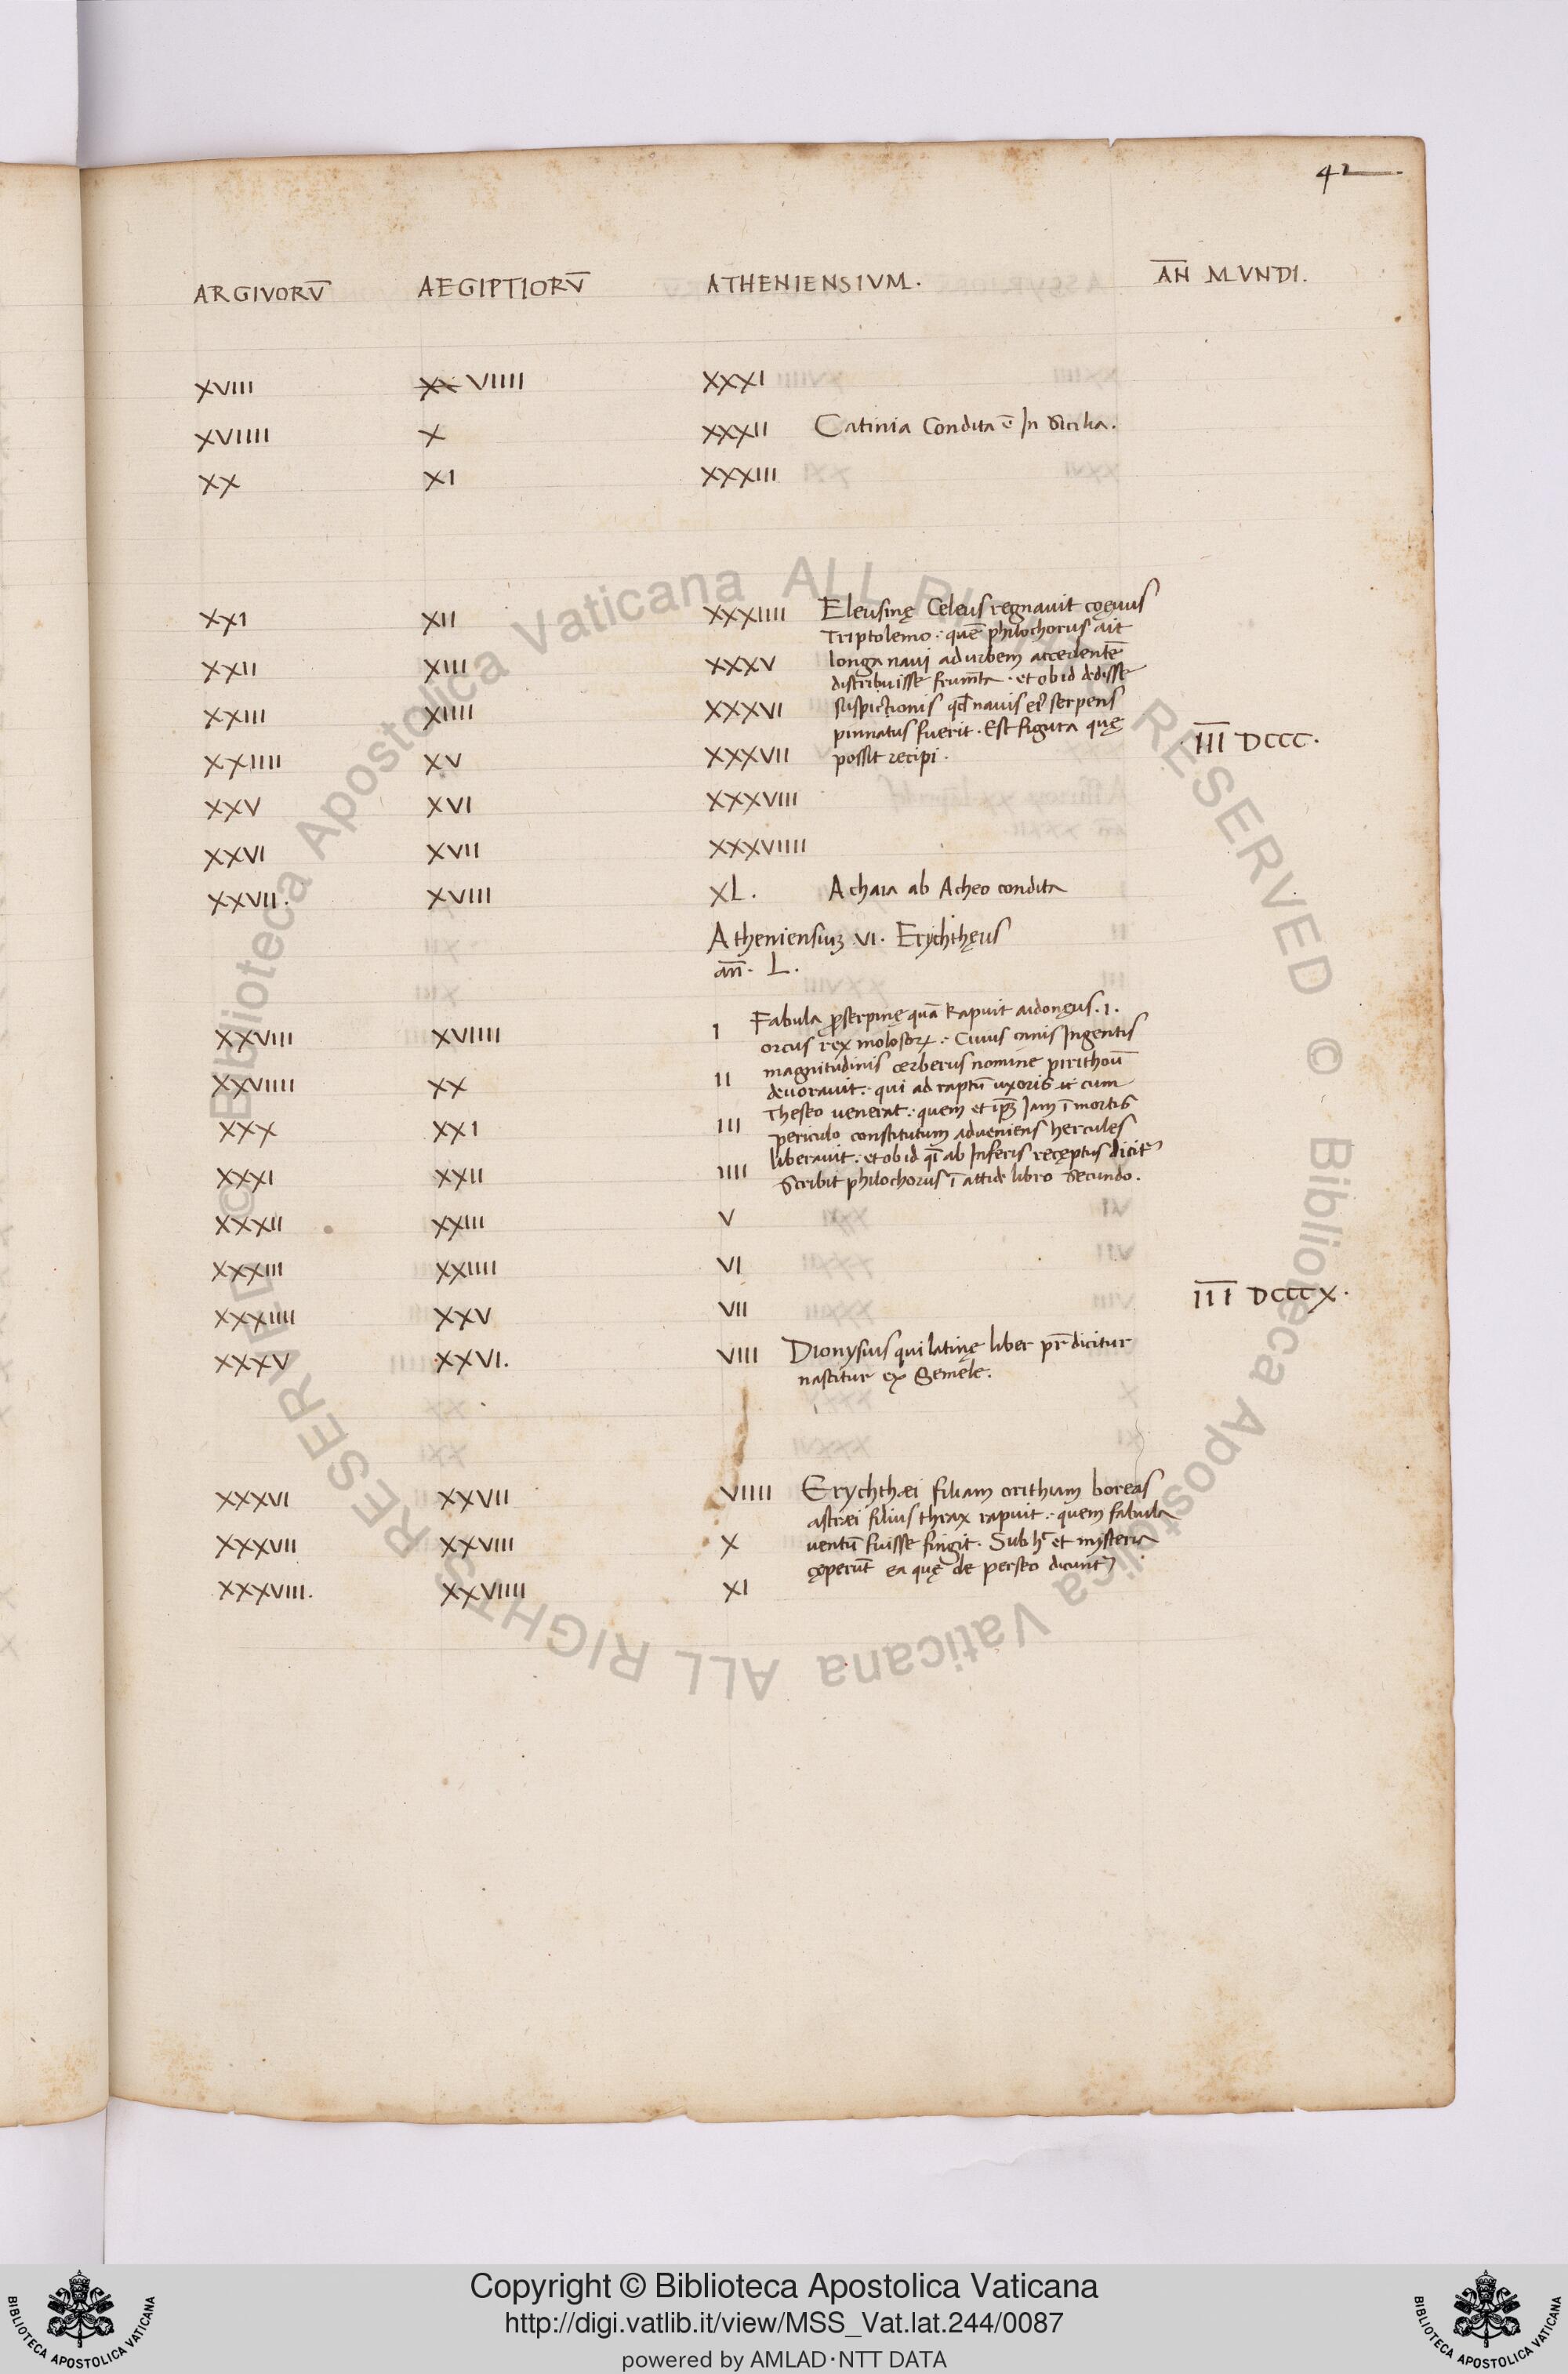 42
ARGIVORV̄ AEGIPTIORV̄ ATHENIENSIVM. AN̄ MVNDI.
XVIII XX VIIII XXXI
XVIIII X XXXII Catinia Condita ē In Sicilia.
XX XI XXXIII
XXI XII XXXIIII Eleusinę Celeus regnavit coęvus
Triptolemo : quē philochorus ait
XXII XIII XXXV longa navi ad urbem accedentē
distribuisse frumēta . et ob id dedisse
XXIII XIIII XXXVI suspictionis qd navis ei serpens
pinnatus fuerit . Est figura quę
XXIIII XV XXXVII possit recipi . III̅ DCCC.
XXV XVI XXXVIII
XXVI XVII XXXVIIII
XXVII. XVIII XL. Achaia ab Acheo condita
Atheniensiuꝫ VI. Erychthęus
an̄. L.
Fabula ꝓserpinę quā Rapuit aidonęus . 1 .
XXVIII XVIIII I orcus rex molosoꝝ : Cuius canis Ingentis
magnitudinis cerberus nomine pirithoū
XXVIIII XX II devoravit : qui ad raptū uxoris cum
Theseo venerat : quem et ip̄ꝫ Iam ī mortis
XXX XXI III periculo constitutum adveniens hercules
liberavit : et ob id q̄ ab Inferis recęptus dicit
XXXI XXII IIII Scribit philochorus ī attide libro Secundo .
XXXII XXIII V
XXXIII XXIIII VI
XXXIIII XXV VII III̅ DCCCX.
XXXV XXVI. VIII Dionysius qui latinę liber pr̄ dicitur
nascitur ex Semele .
XXXVI XXVII VIIII Erychthæi filiam orithum boreas
astræi filius thrax rapuit : quem fabula
XXXVII XXVIII X ventū fuisse fingit . Sub h᷎ et mysteria
cęperūt ea quę de perseo dicunt
XXXVIII. XXVIIII XI
© Biblioteca Apostolica Vaticana ALL RIGHTS RESERVED © Biblioteca Apostolica Vaticana ALL RIGHTS RESERVED
Copyright © Biblioteca Apostolica Vaticana
http://digi.vatlib.it/view/MSS_Vat.lat.244/0087
powered by AMLAD·NTT DATA
BIBLIOTECA APOSTOLICA VATICANA
BIBLIOTECA APOSTOLICA VATICANA